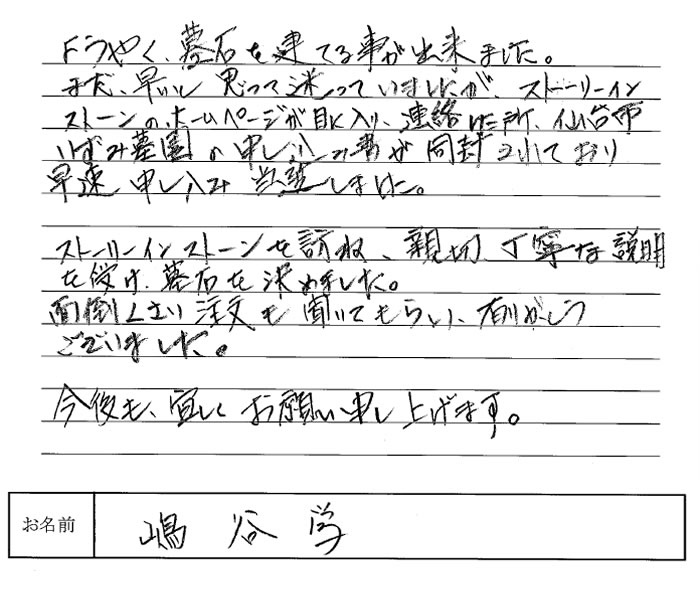 ようやく、墓石を建てる事が出来ました。
まだ、早いし 思って迷っていましたが、ストーリーイン
ストーンのホームページが目に入り、連絡した所、仙台市
いずみ墓園の申し込み書が同封されており
早速 申し込み 当選しました。
ストーリーインストーンを訪ね、親切、丁寧な説明
を受け、墓石を決めました。
面倒くさい注文も聞いてもらい、有りがとう
ございました。
今後も、宜しくお願い申し上げます。
お名前 嶋谷学